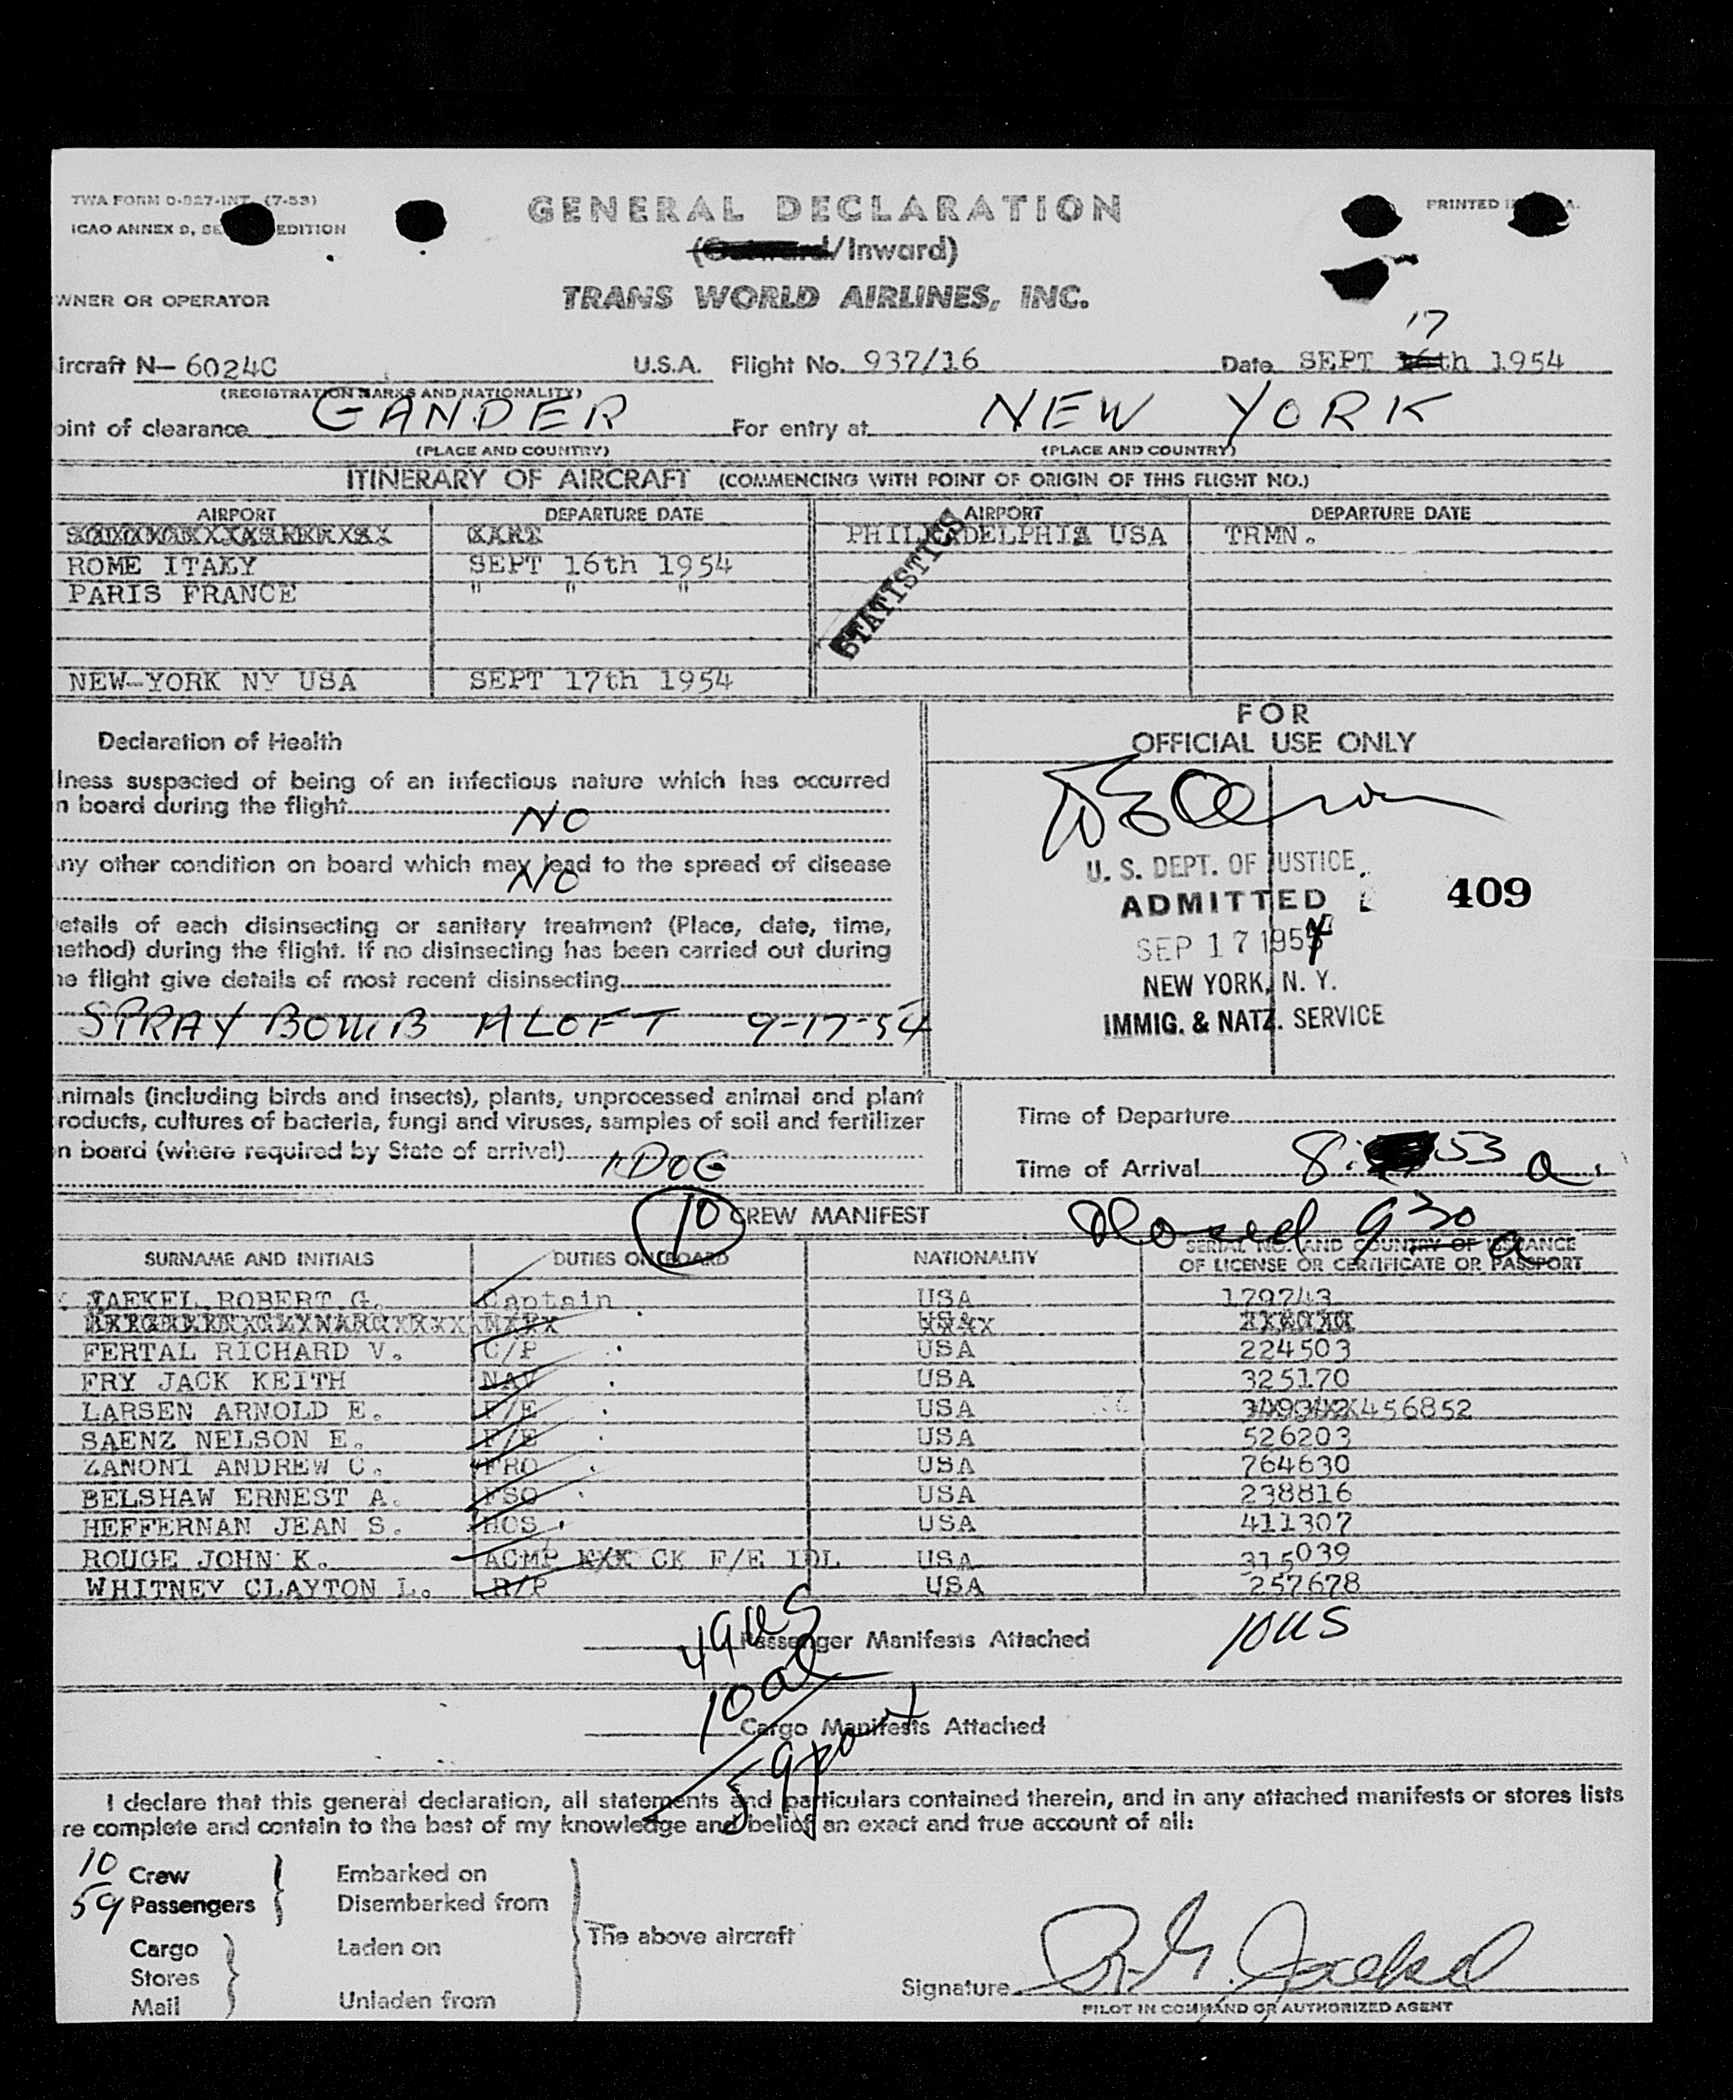 TWA FORM O-927-INT (7-53)
ICAO ANNEX 9, EDITION
PRINTED
GENERAL DECLARATION
/Inward)
WNER OR OPERATOR
TRANS WORLD AIRLINES, INC.
17
ircraft N- 6024C U.S.A. Flight No. 937/16 Date SEPT 16th 1954
(REGISTRATION MARKS AND NATIONALITY)
oint of clearance GANDER For entry at NEW YORK
(PLACE AND COUNTRY) (PLACE AND COUNTRY)
ITINERARY OF AIRCRAFT (COMMENCING WITH POINT OF ORIGIN OF THIS FLIGHT NO.)
AIRPORT DEPARTURE DATE AIRPORT DEPARTURE DATE
PHILADELPHIA USA TRMN.
ROME ITALY SEPT 16th 1954
PARIS FRANCE " " "
STATISTICS
NEW-YORK NY USA SEPT 17th 1954
FOR
OFFICIAL USE ONLY
Declaration of Health
lness suspected of being of an infectious nature which has occurred
n board during the flight NO
ny other condition on board which may lead to the spread of disease
NO
etails of each disinsecting or sanitary treatment (Place, date, time,
ethod) during the flight. If no disinsecting has been carried out during
he flight give details of most recent disinsecting
SPRAY BOMB ALOFT 9-17-54
U. S. DEPT. OF JUSTICE
ADMITTED 409
SEP 17 1954
NEW YORK, N. Y.
IMMIG. & NATZ. SERVICE
nimals (including birds and insects), plants, unprocessed animal and plant
roducts, cultures of bacteria, fungi and viruses, samples of soil and fertilizer
n board (where required by State of arrival) 1 DOG
Time of Departure
Time of Arrival 8:53 a.
10 CREW MANIFEST
930 a
SURNAME AND INITIALS DUTIES ON BOARD NATIONALITY SERIAL NO. AND COUNTRY OF ISSUANCE
OF LICENSE OR CERTIFICATE OR PASSPORT
JAEKEL ROBERT G. Captain USA 179743
FERTAL RICHARD V. C/P USA 224503
FRY JACK KEITH NAV USA 325170
LARSEN ARNOLD E. F/E USA 456852
SAENZ NELSON E. F/E USA 526203
ZANONI ANDREW C. FRO USA 764630
BELSHAW ERNEST A. FSO USA 238816
HEFFERNAN JEAN S. HOS USA 411307
ROUGE JOHN K. ACMP CK F/E IDL USA 315039
WHITNEY CLAYTON L. R/P USA 257678
49 US
Passenger Manifests Attached 10 US
10 al
Cargo Manifests Attached
59
I declare that this general declaration, all statements and particulars contained therein, and in any attached manifests or stores lists
re complete and contain to the best of my knowledge and belief an exact and true account of all:
10 Crew Embarked on
59 Passengers Disembarked from
The above aircraft
Cargo Laden on
Stores
Mail Unladen from
Signature R. G. Jaekel
PILOT IN COMMAND OR AUTHORIZED AGENT